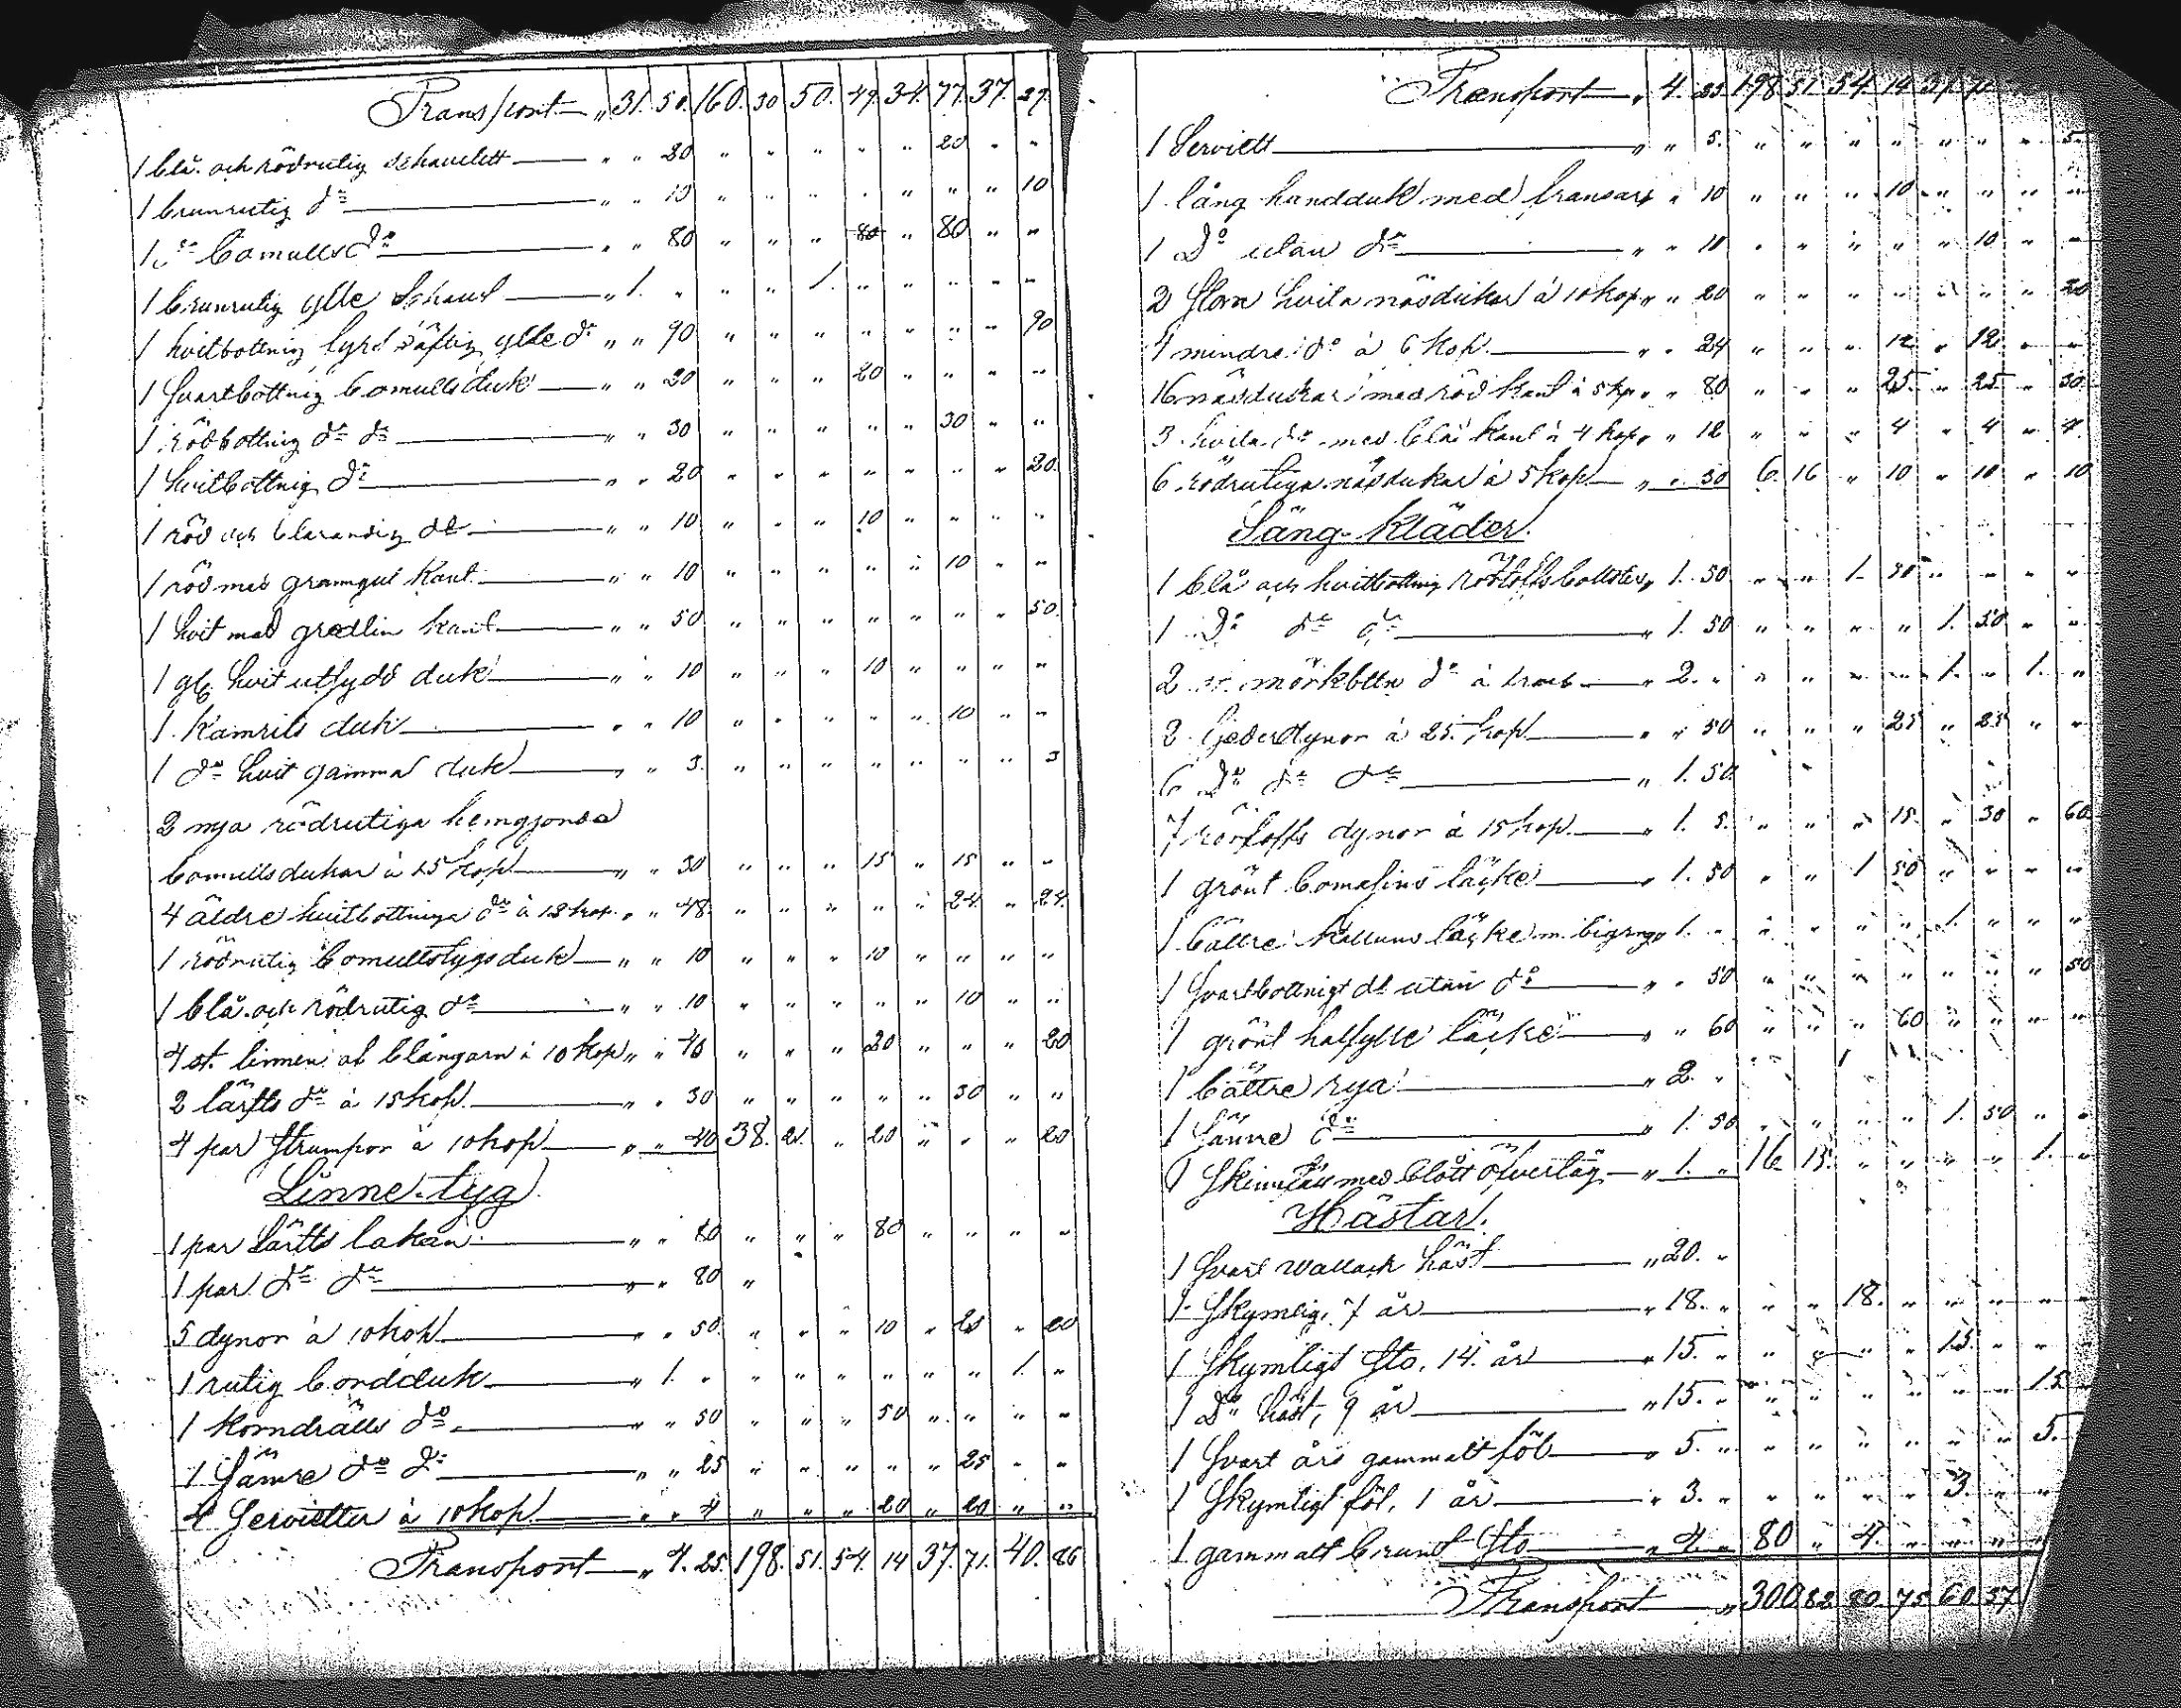 Transport „ 31. 50. 160. 30 50. 49. 34. 77. 37. 27.
1 blå och rödrutig schaulett „ „ 20 „ „ „ „ „ 20 „ „
1 brunrutig do „ „ 10 „ „ „ „ „ „ „ 10
1 do bomulls do „ „ 80 „ „ „ 80 „ 80 „ „
1 brunrutig ylle schaul „ 1. „ „ „ 1. „ „ „ „ „
1 hvitbottnig ylle do „ „ 90 „ „ „ „ „ „ „ 90
1 Svartbottnig bomullsduk „ „ 20 „ „ „ 20 „ „ „ „
1 rödbottnig do do „ „ 30 „ „ „ „ „ 30 „ „
1 hvitbottnig do „ „ 20 „ „ „ „ „ „ „ 20.
1 röd och blarandig do „ „ 10 „ „ „ 10 „ „ „ „
1 röd med kant „ „ 10 „ „ „ „ „ 10 „ „
1 hvit med gredlin kant „ „ 50 „ „ „ „ „ „ „ 50.
1 hvit utsydd duk „ „ 10 „ „ „ 10 „ „ „ „
1 Kamrits duk „ „ 10 „ „ „ „ „ 10 „ „
1 do hvit gammal duk „ „ 3. „ „ „ „ „ „ „ 3
2 nya rödrutiga hemgjorda
bomullsdukar à 15 kop „ „ 30 „ „ „ 15 „ 15 „ „
4 äldre hvitbottniga do à 12 kop. „ „ 48. „ „ „ „ „ 24. „ 24.
1 rödrutig bomullstygsduk „ „ 10 „ „ „ 10 „ „ „ „
1 blå och rödrutig do „ „ 10 „ „ „ „ „ 10 „ „
4 st. linnen af blångarn à 10 kop „ „ 40 „ „ „ 20 „ „ „ 20
2 lärfts do à 15 kop. „ „ 30 „ „ „ „ „ 30 „ „
4 par Strumpor à 10 kop „ „ 40 38. 21. „ 20 „ „ „ 20
Linne-tyg.
1 par Lärfts lakan „ „ 80 „ „ „ 80 „ „ „ „
1 par do do „ „ 80 „
5 dynor à 10 kop „ „ 50. „ „ „ 10 „ 20 „ 20
1 rutig bordduk „ 1. „ „ „ „ „ „ „ 1. „
1 Korndrälls do „ „ 50 „ „ „ 50 „ „ „ „
1 Sämre do do „ „ 25 „ „ „ „ „ 25 „ „
4 Servietter à 10 kop „ „ 4 „ „ „ 20 „ 20 „ „
Transport „ 4. 25. 198. 51. 54. 14 37. 71. 40. 26
Transport „ 4. 25. 198. 51. 54. 14 37. 71
1 Serviett „ „ 5. „ „ „ „ „ „ „ 5.
1 lång handduk med fransar „ „ 10 „ „ „ 10 „ „ „ „
1 Do utan do „ „ 10 „ „ „ „ „ 10 „ „
2 Stora hvita näsdukar à 10 kop „ „ 20 „ „ „ „ „ „ „ 20
4 mindre do à 6 kop. „ „ 24 „ „ „ 12 „ 12. „ „
16 näsdukar med röd kant à 5 kp „ „ 80 „ „ „ 25. „ 25 „ 30.
3 hvita do med blå kant à 4 kop „ „ 12 „ „ „ 4 „ 4 „ 4.
6 rödrutiga näsdukar à 5 kop „ „ 30 6. 16 „ 10 „ 10 „ 10
Säng-kläder.
1 blå och hvitbottnig bolster „ 1. 50 „ „ 1. 50 „ „ „ „
1 Do do do „ 1. 50 „ „ „ „ 1. 50 „ „
2 st. mörkbttn do à „ 2. „ „ „ „ „ 1. „ 1. „
2 fjederdynor à 25. kop „ „ 50 „ „ „ 25 „ 25 „ „
6 Do do do „ 1. 50.
7 dynor à 15 kop. „ 1. 5. „ „ „ 15. „ 30 „ 60.
1 grönt täcke „ 1. 50 „ „ 1 50 „ „ „ „
1 bättre Kattuns täcke „ 1. „ „ „ „ „ 1. „ „ „
1 Svartbottnigt do utan do „ „ 50 „ „ „ „ „ „ „ 50
1 grönt halfylle täcke „ „ 60 „ „ „ 60 „ „ „ „
1 bättre rya „ 2. „
1 Sämre do „ 1. 50 „ „ „ „ 1. 50 „ „
1 Skinnfäll med blått öfverläg „ 1. „ 16 15. „ „ „ „ 1. „
Hästar.
1 Svart wallack häst „ 20. „
1 Skymlig, 7 år „ 18. „ „ „ 18. „ „ „ „ „
1 Skymligt Sto, 14. år „ 15. „ „ „ „ „ 15. „ „ „
1 Do häst, 9 år „ 15. „ „ „ „ „ „ „ 15. „
1 Svart års gammalt föl „ 5. „ „ „ „ „ „ „ 5. „
1 Skymligt föl, 1 år „ 3. „ „ „ „ „ 3. „ „ „
1 gammalt brunt Sto „ 4. „ 80 „ 4. „ „ „ „ „
Transport „ 300. 82. 80. 75 60. 57